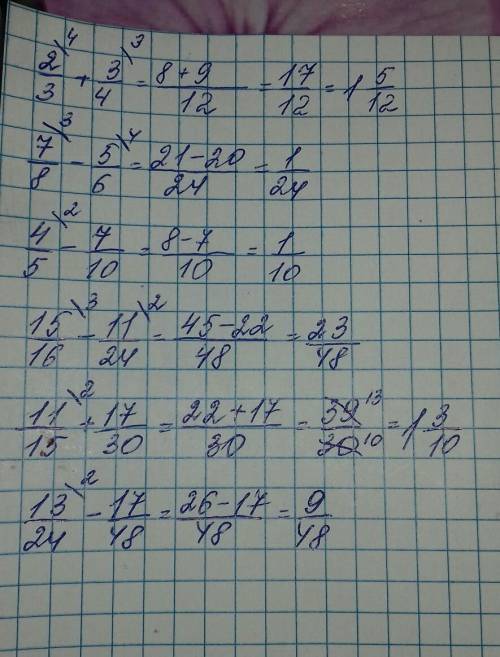 2/3 \4 + 3/4 \3 = 8+9/12 = 17/12 = 1 5/12
7/8 \3 - 5/6 \4 = 21-20/24 = 1/24
4/5 \2 - 7/10 = 8-7/10 = 1/10
15/16 \3 - 11/24 \2 = 45-22/48 = 23/48
11/15 \2 + 17/30 = 22+17/30 = 39 13/30 10 = 1 3/10
13/24 \2 - 17/48 = 26-17/48 = 9/48